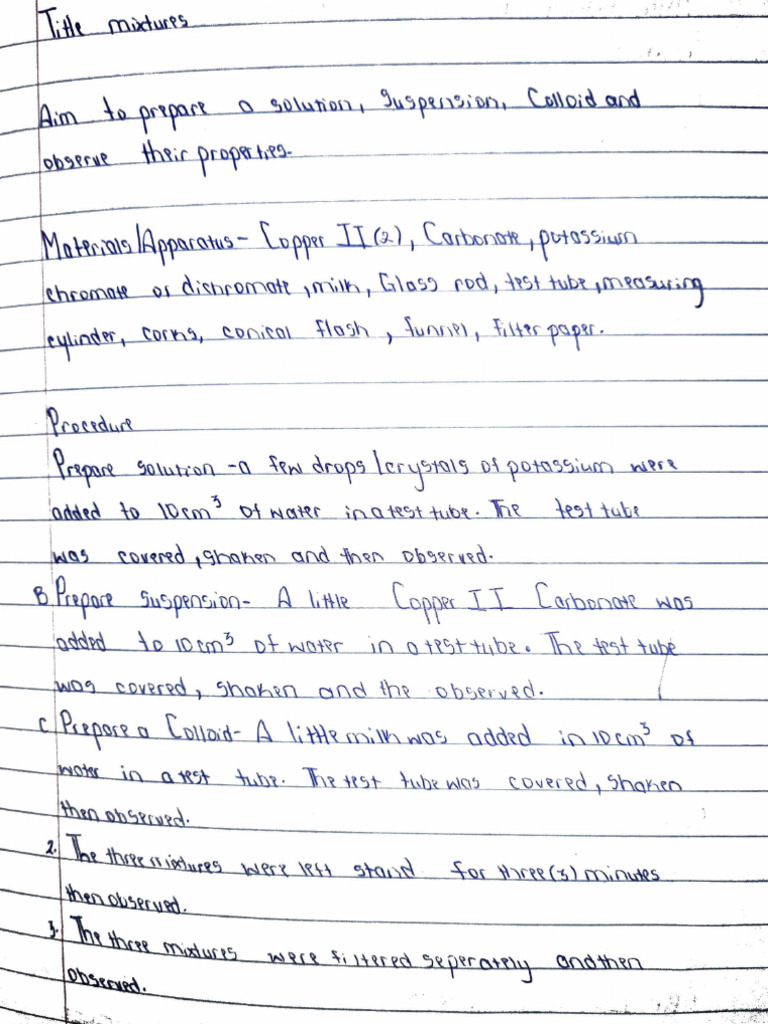 Title mixtures
Aim to prepare a solution, suspension, Colloid and
observe their properties.
Materials/Apparatus- Copper II (2), Carbonate, potassium
chromate or dichromate, milk, Glass rod, test tube, measuring
cylinder, corks, conical flash, funnel, filter paper.
Procedure
Prepare solution -a few drops/crystals of potassium were
added to 10cm³ of water in a test tube. The test tube
was covered, shaken and then observed.
B Prepare suspension- A little Copper II Carbonate was
added to 10cm³ of water in a test tube. The test tube
was covered, shaken and the observed.
C Prepare a Colloid- A little milk was added in 10cm³ of
water in a test tube. The test tube was covered, shaken
then observed.
2. The three mixtures were left stand for three(3) minutes
then observed.
3. The three mixtures were filtered seperately and then
observed.